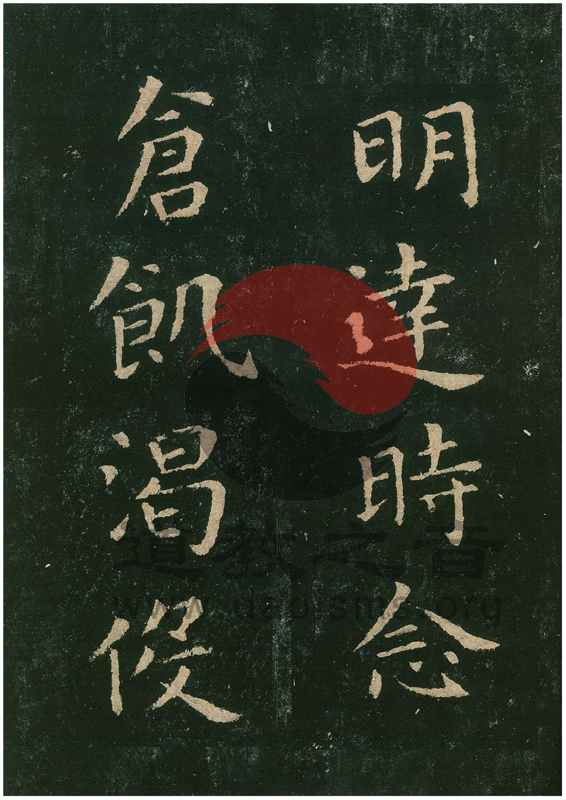 明達時念
倉飢渴侵
道教之音
www.daoisms.org